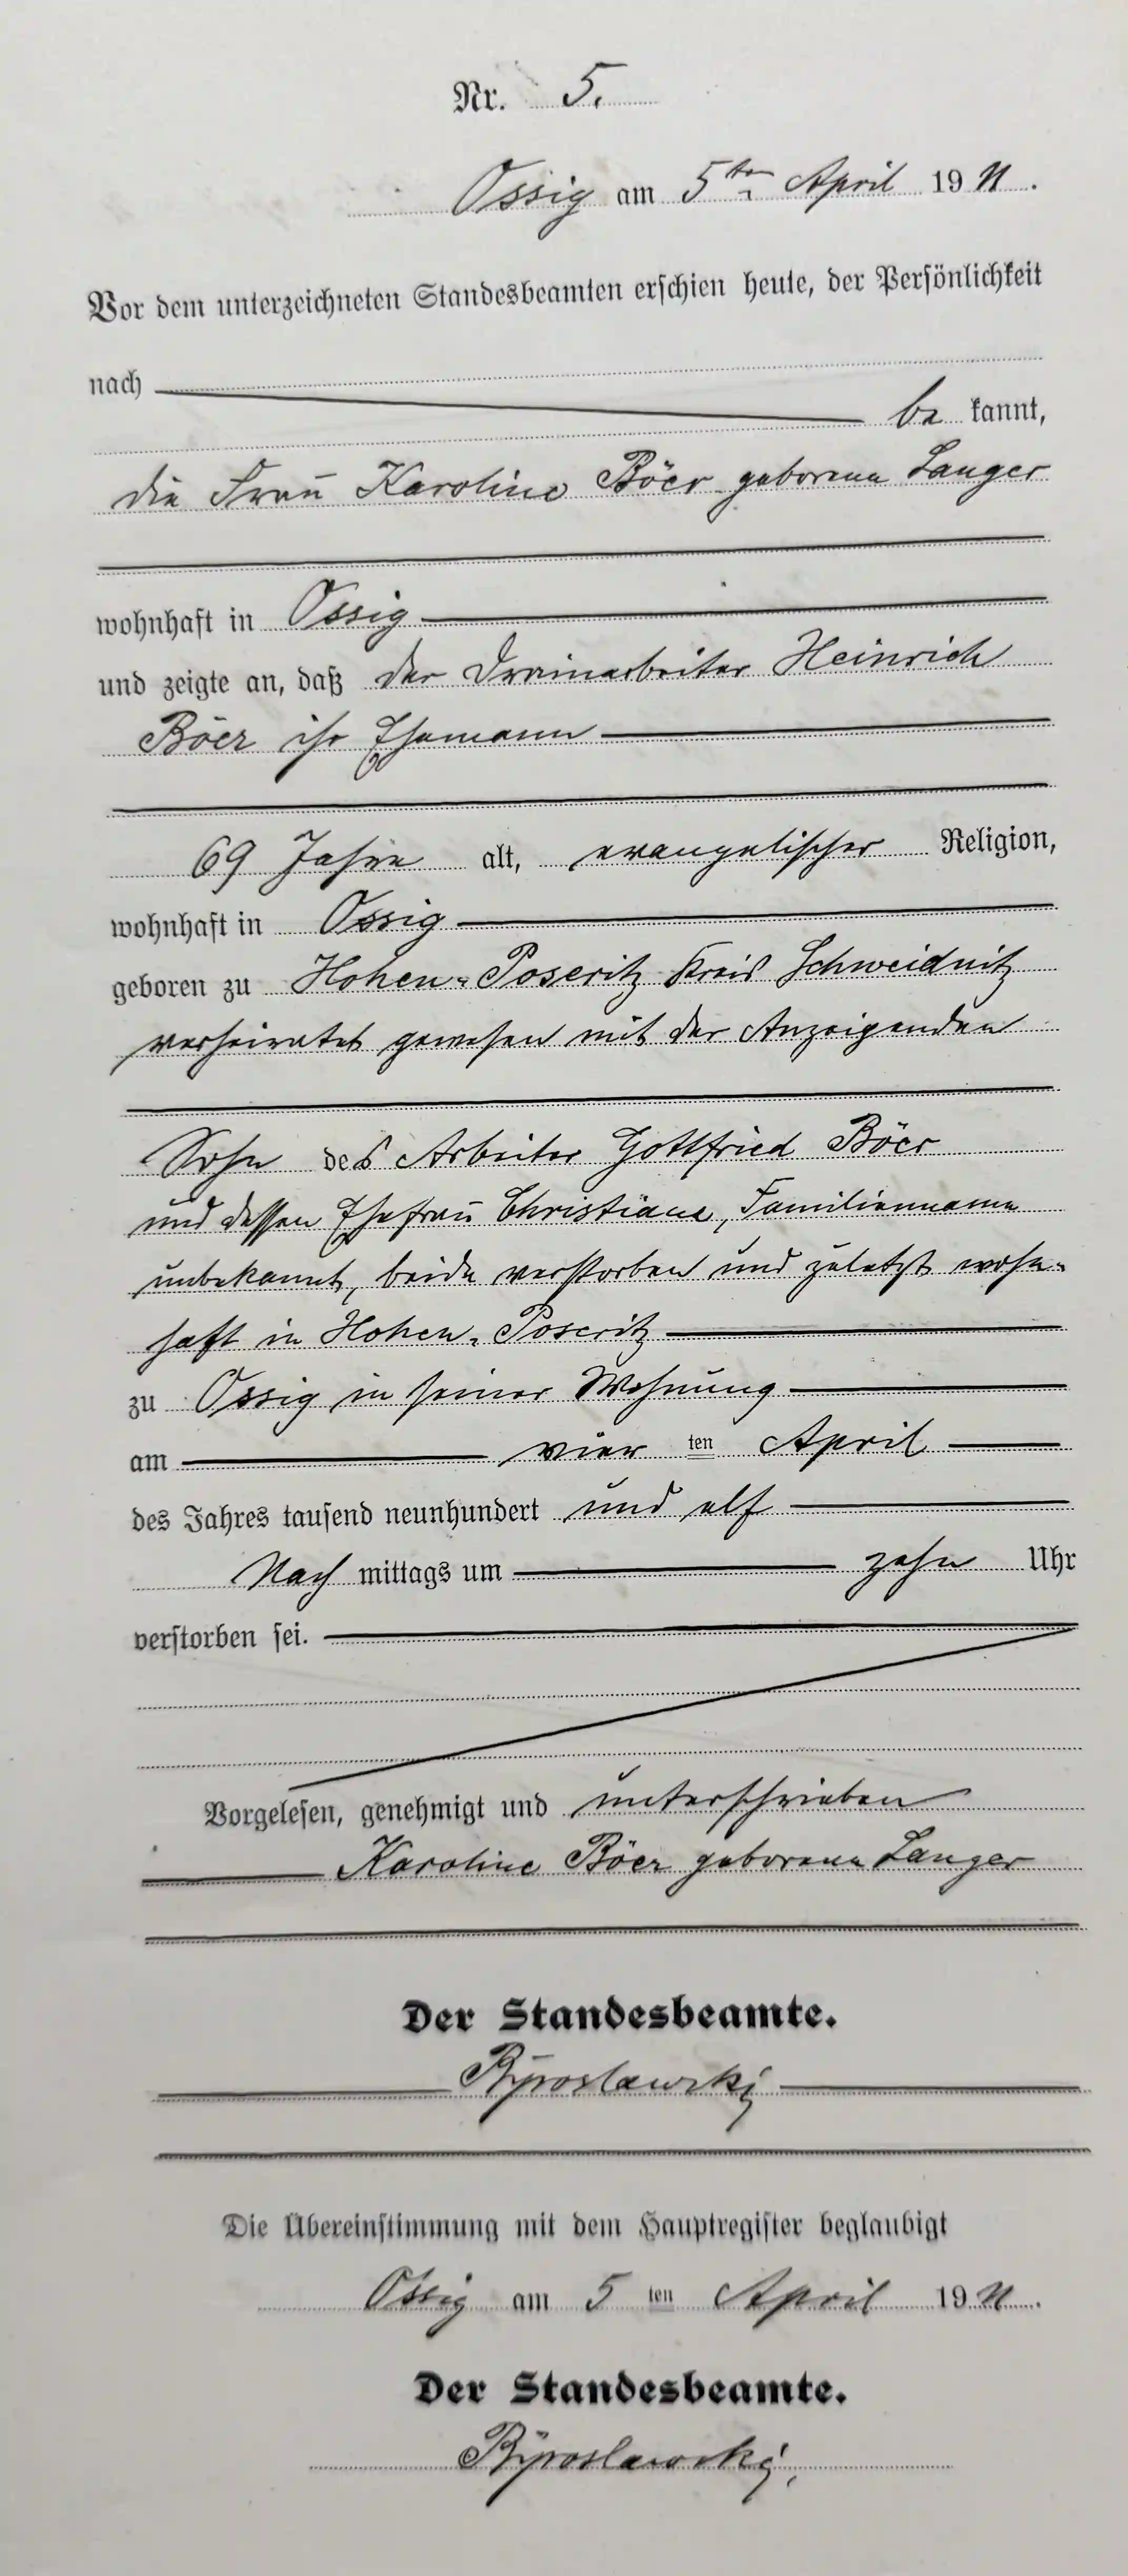 Nr. 5.
Ossig am 5ten April 1911.
Vor dem unterzeichneten Standesbeamten erschien heute, der Persönlichkeit
nach
be kannt,
die Frau Karoline Böer geborene Langer
wohnhaft in Ossig
und zeigte an, daß der Drainarbeiter Heinrich
Böer ihr Ehemann
69 Jahre alt, evangelischer Religion,
wohnhaft in Ossig
geboren zu Hohen-Poseritz Kreis Schweidnitz
verheiratet gewesen mit der Anzeigenden
Sohn des Arbeiter Gottfried Böer
und dessen Ehefrau Christiane, Familienname
unbekannt, beide verstorben und zuletzt wohn-
haft in Hohen-Poseritz
zu Ossig in seiner Wohnung
am vier ten April
des Jahres tausend neunhundert und elf
Nach mittags um zehn Uhr
verstorben sei.
Vorgelesen, genehmigt und unterschrieben
Karoline Böer geborene Langer
Der Standesbeamte.
Die Übereinstimmung mit dem Hauptregister beglaubigt
Ossig am 5 ten April 1911.
Der Standesbeamte.